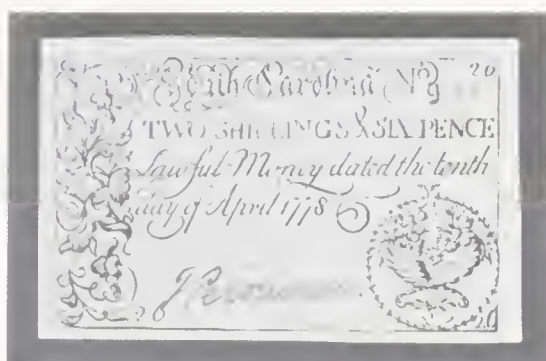 South Carolina No 20
TWO SHILLINGS & SIX PENCE
Lawful Money dated the tenth
day of April 1778